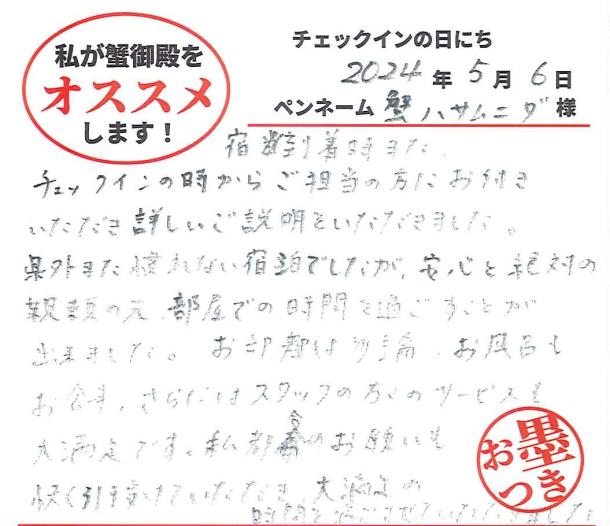 私が蟹御殿を
オススメ
します！
チェックインの日にち
2024年5月6日
ペンネーム 蟹ハサムニダ 様
宿到着時また、
チェックインの時からご担当の方にお付き
いただき詳しいご説明をいただきました。
県外また慣れない宿泊でしたが、安心と絶対の
信頼の元、部屋での時間を過ごすことが
出来ました。お部屋は勿論、お風呂も
お食事、さらにはスタッフの方々のサービスも
大満足です。私都合のお願いも
快く引き受けていただき、大満足の
時間を過ごさせていただきました
お墨つき